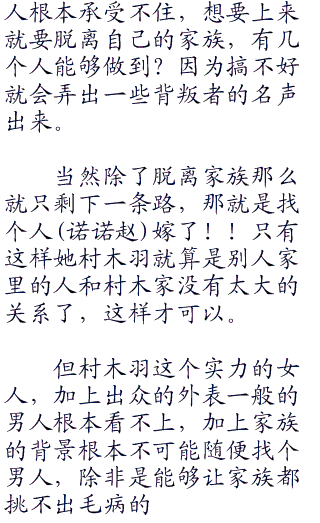 人根本承受不住，想要上来
就要脱离自己的家族，有几
个人能够做到？因为搞不好
就会弄出一些背叛者的名声
出来。
当然除了脱离家族那么
就只剩下一条路，那就是找
个人(诺诺赵)嫁了！！只有
这样她村木羽就算是别人家
里的人和村木家没有太大的
关系了，这样才可以。
但村木羽这个实力的女
人，加上出众的外表一般的
男人根本看不上，加上家族
的背景根本不可能随便找个
男人，除非是能够让家族都
挑不出毛病的